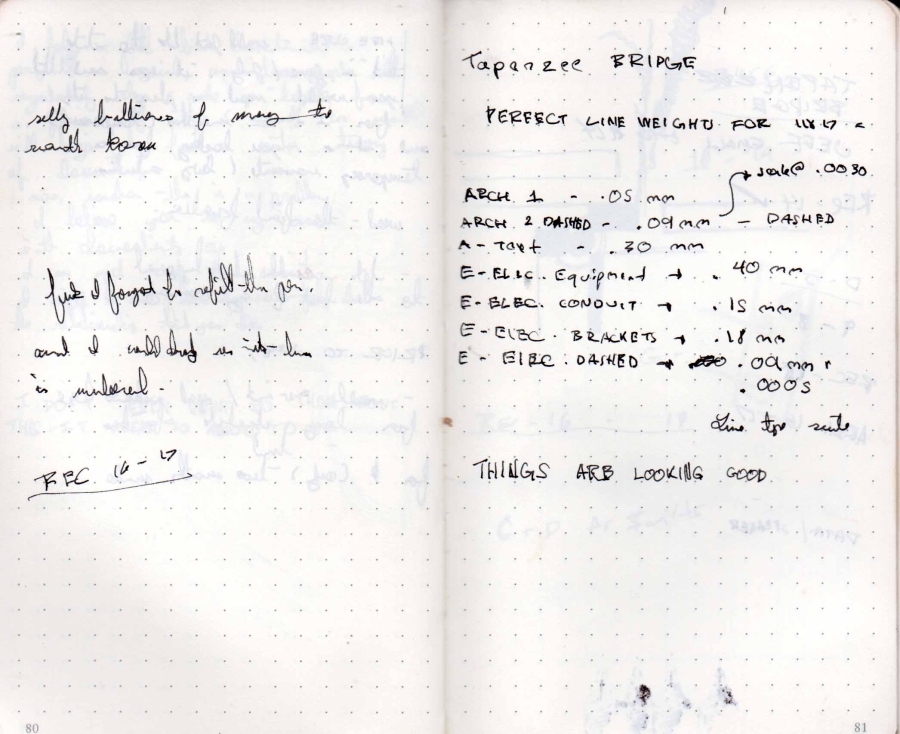 selly billions of money to
north korea
fuck I forgot to refill the pen.
and I
is
REC. 16-17
80
Tapanzee BRIDGE
PERFECT LINE WEIGHTS FOR 11x17 =
scale@ .0030
ARCH 1 - .05 mm
ARCH 2 DASHED - .09 mm - DASHED
A - Text - .30 mm
E - ELEC. Equipment → .40 mm
E - ELEC. CONDUIT → .15 mm
E - ELEC. BRACKETS → .18 mm
E - ELEC. DASHED → .09 mm
.0005
Line type scale
THINGS ARE LOOKING GOOD
81